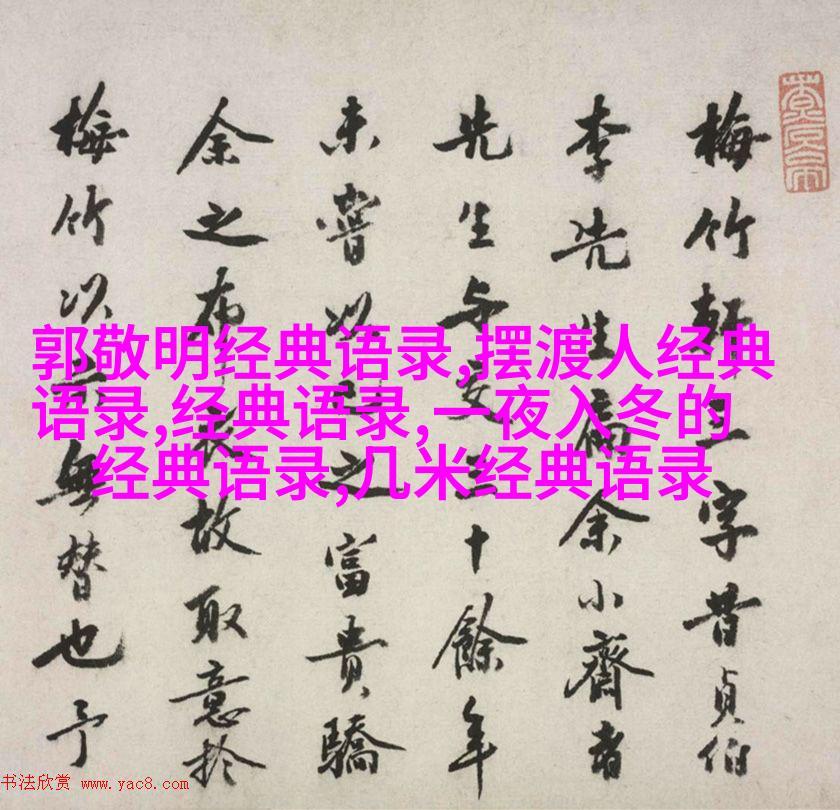 梅竹軒三字昔貞伯
李先生余小齋者
先生与交三十餘年
未嘗以己之富貴驕
余之布衣故取意於
梅竹以示無替也予
郭敬明经典语录,摆渡人经典
语录,经典语录,一夜入冬的
经典语录,几米经典语录
书法欣赏 www.yac8.com